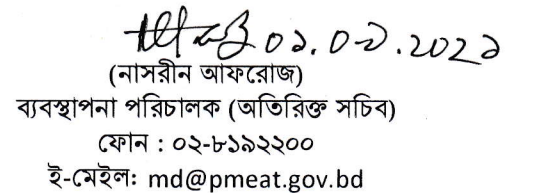 ০১.০৮.২০২১
(নাসরীন আফরোজ)
ব্যবস্থাপনা পরিচালক (অতিরিক্ত সচিব)
ফোন : ০২-৮১৯২২০০
ই-মেইলঃ md@pmeat.gov.bd